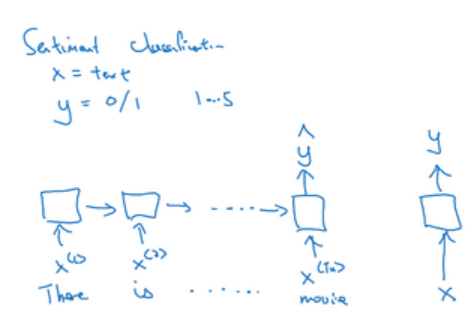 Sentiment classification
x = text
y = 0/1 1...5
ŷ y
......
x<1> x<2> x<Tx> x
There is ...... movie